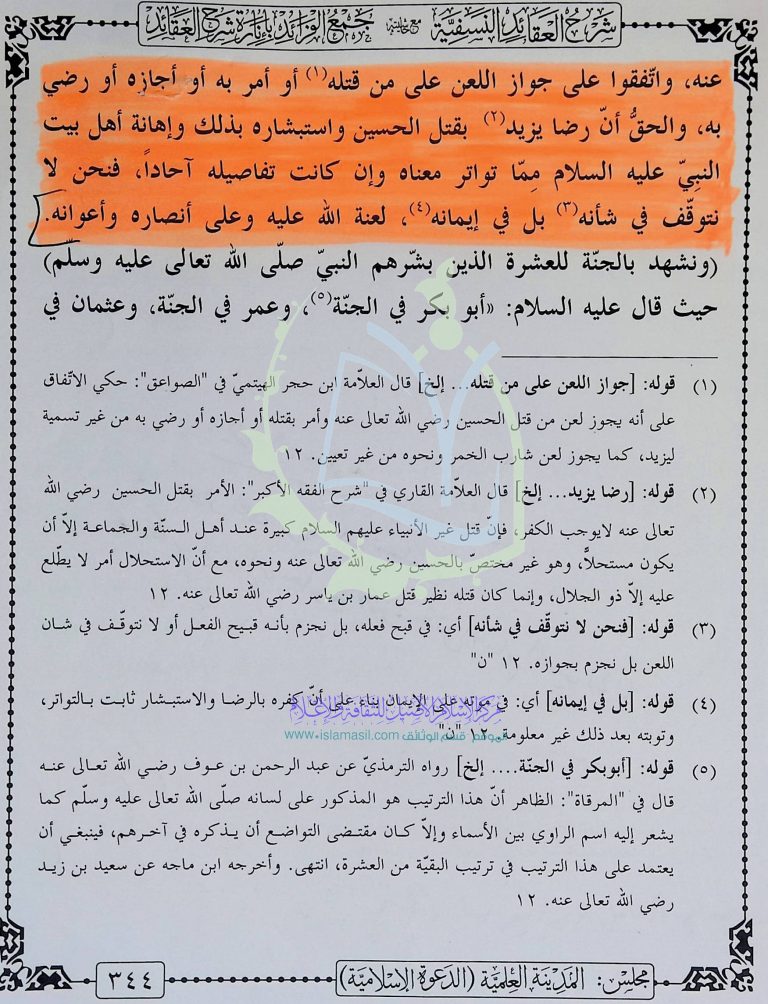 شرح العقائد النسفية مع حاشيته جمع الفرائد بإنارة شرح العقائد
عنه، واتّفقوا على جواز اللعن على من قتله(١) أو أمر به أو أجازه أو رضي
به، والحقُّ أنّ رضا يزيد(٢) بقتل الحسين واستبشاره بذلك وإهانة أهل بيت
النبِيّ عليه السلام مِمّا تواتر معناه وإن كانت تفاصيله آحاداً، فنحن لا
نتوقّف في شأنه(٣) بل في إيمانه(٤)، لعنة الله عليه وعلى أنصاره وأعوانه.
(ونشهد بالجنّة للعشرة الذين بشّرهم النبيّ صلّى الله تعالى عليه وسلّم)
حيث قال عليه السلام: «أبو بكر في الجنّة(٥)، وعمر في الجنّة، وعثمان في
(١) قوله: [جواز اللعن على من قتله... إلخ] قال العلاّمة ابن حجر الهيتميّ في "الصواعق": حكي الاتّفاق
على أنه يجوز لعن من قتل الحسين رضي الله تعالى عنه وأمر بقتله أو أجازه أو رضي به من غير تسمية
ليزيد، كما يجوز لعن شارب الخمر ونحوه من غير تعيين. ١٢
(٢) قوله: [رضا يزيد... إلخ] قال العلاّمة القاري في "شرح الفقه الأكبر": الأمر بقتل الحسين رضي الله
تعالى عنه لايوجب الكفر، فإنّ قتل غير الأنبياء عليهم السلام كبيرة عند أهل السنّة والجماعة إلاّ أن
يكون مستحلاًّ، وهو غير مختصّ بالحسين رضي الله تعالى عنه ونحوه، مع أنّ الاستحلال أمر لا يطّلع
عليه إلاّ ذو الجلال، وإنما كان قتله نظير قتل عمار بن ياسر رضي الله تعالى عنه. ١٢
(٣) قوله: [فنحن لا نتوقّف في شأنه] أي: في قبح فعله، بل نجزم بأنه قبيح الفعل أو لا نتوقّف في شان
اللعن بل نجزم بجوازه. ١٢ "ن"
(٤) قوله: [بل في إيمانه] أي: في موته على الإيمان بناء على أنّ كفره بالرضا والاستبشار ثابت بالتواتر،
وتوبته بعد ذلك غير معلومة. ١٢ "ن"
مركز الإسلام الأصيل للثقافة والإعلام
موقع قسم الوثائق www.islamasil.com
(٥) قوله: [أبوبكر في الجنّة.... إلخ] رواه الترمذيّ عن عبد الرحمن بن عوف رضي الله تعالى عنه
قال في "المرقاة": الظاهر أنّ هذا الترتيب هو المذكور على لسانه صلّى الله تعالى عليه وسلّم كما
يشعر إليه اسم الراوي بين الأسماء وإلاّ كان مقتضى التواضع أن يذكره في آخرهم، فينبغي أن
يعتمد على هذا الترتيب في ترتيب البقيّة من العشرة، انتهى. وأخرجه ابن ماجه عن سعيد بن زيد
رضي الله تعالى عنه. ١٢
مجلس: المدينة العلمية (الدعوة الإسلامية)
٣٤٤